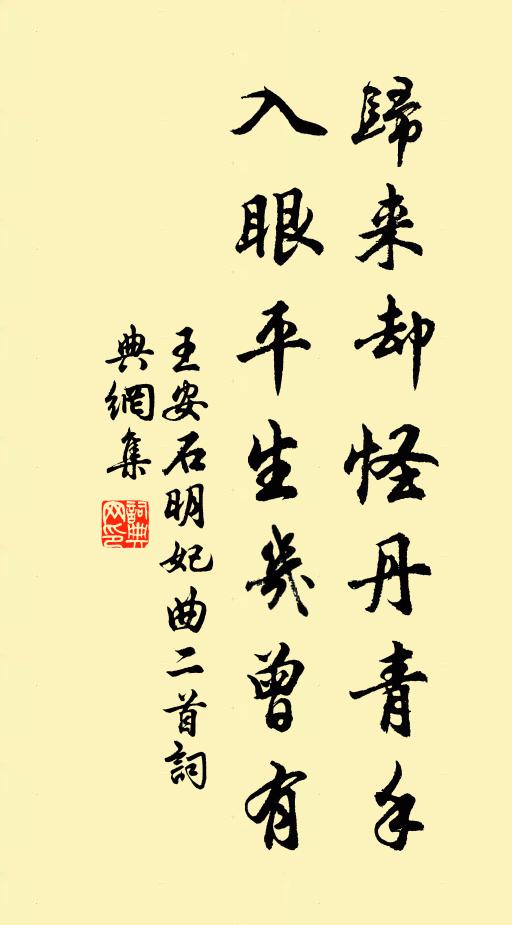 歸来却怪丹青手
入眼平生幾曾有
王安石明妃曲二首詞
典網集
詞典网印